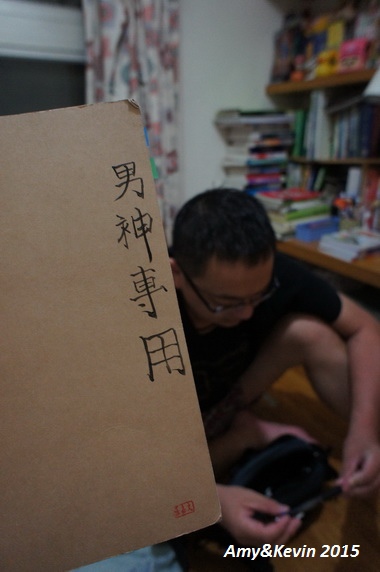 男神專用
Amy&Kevin 2015